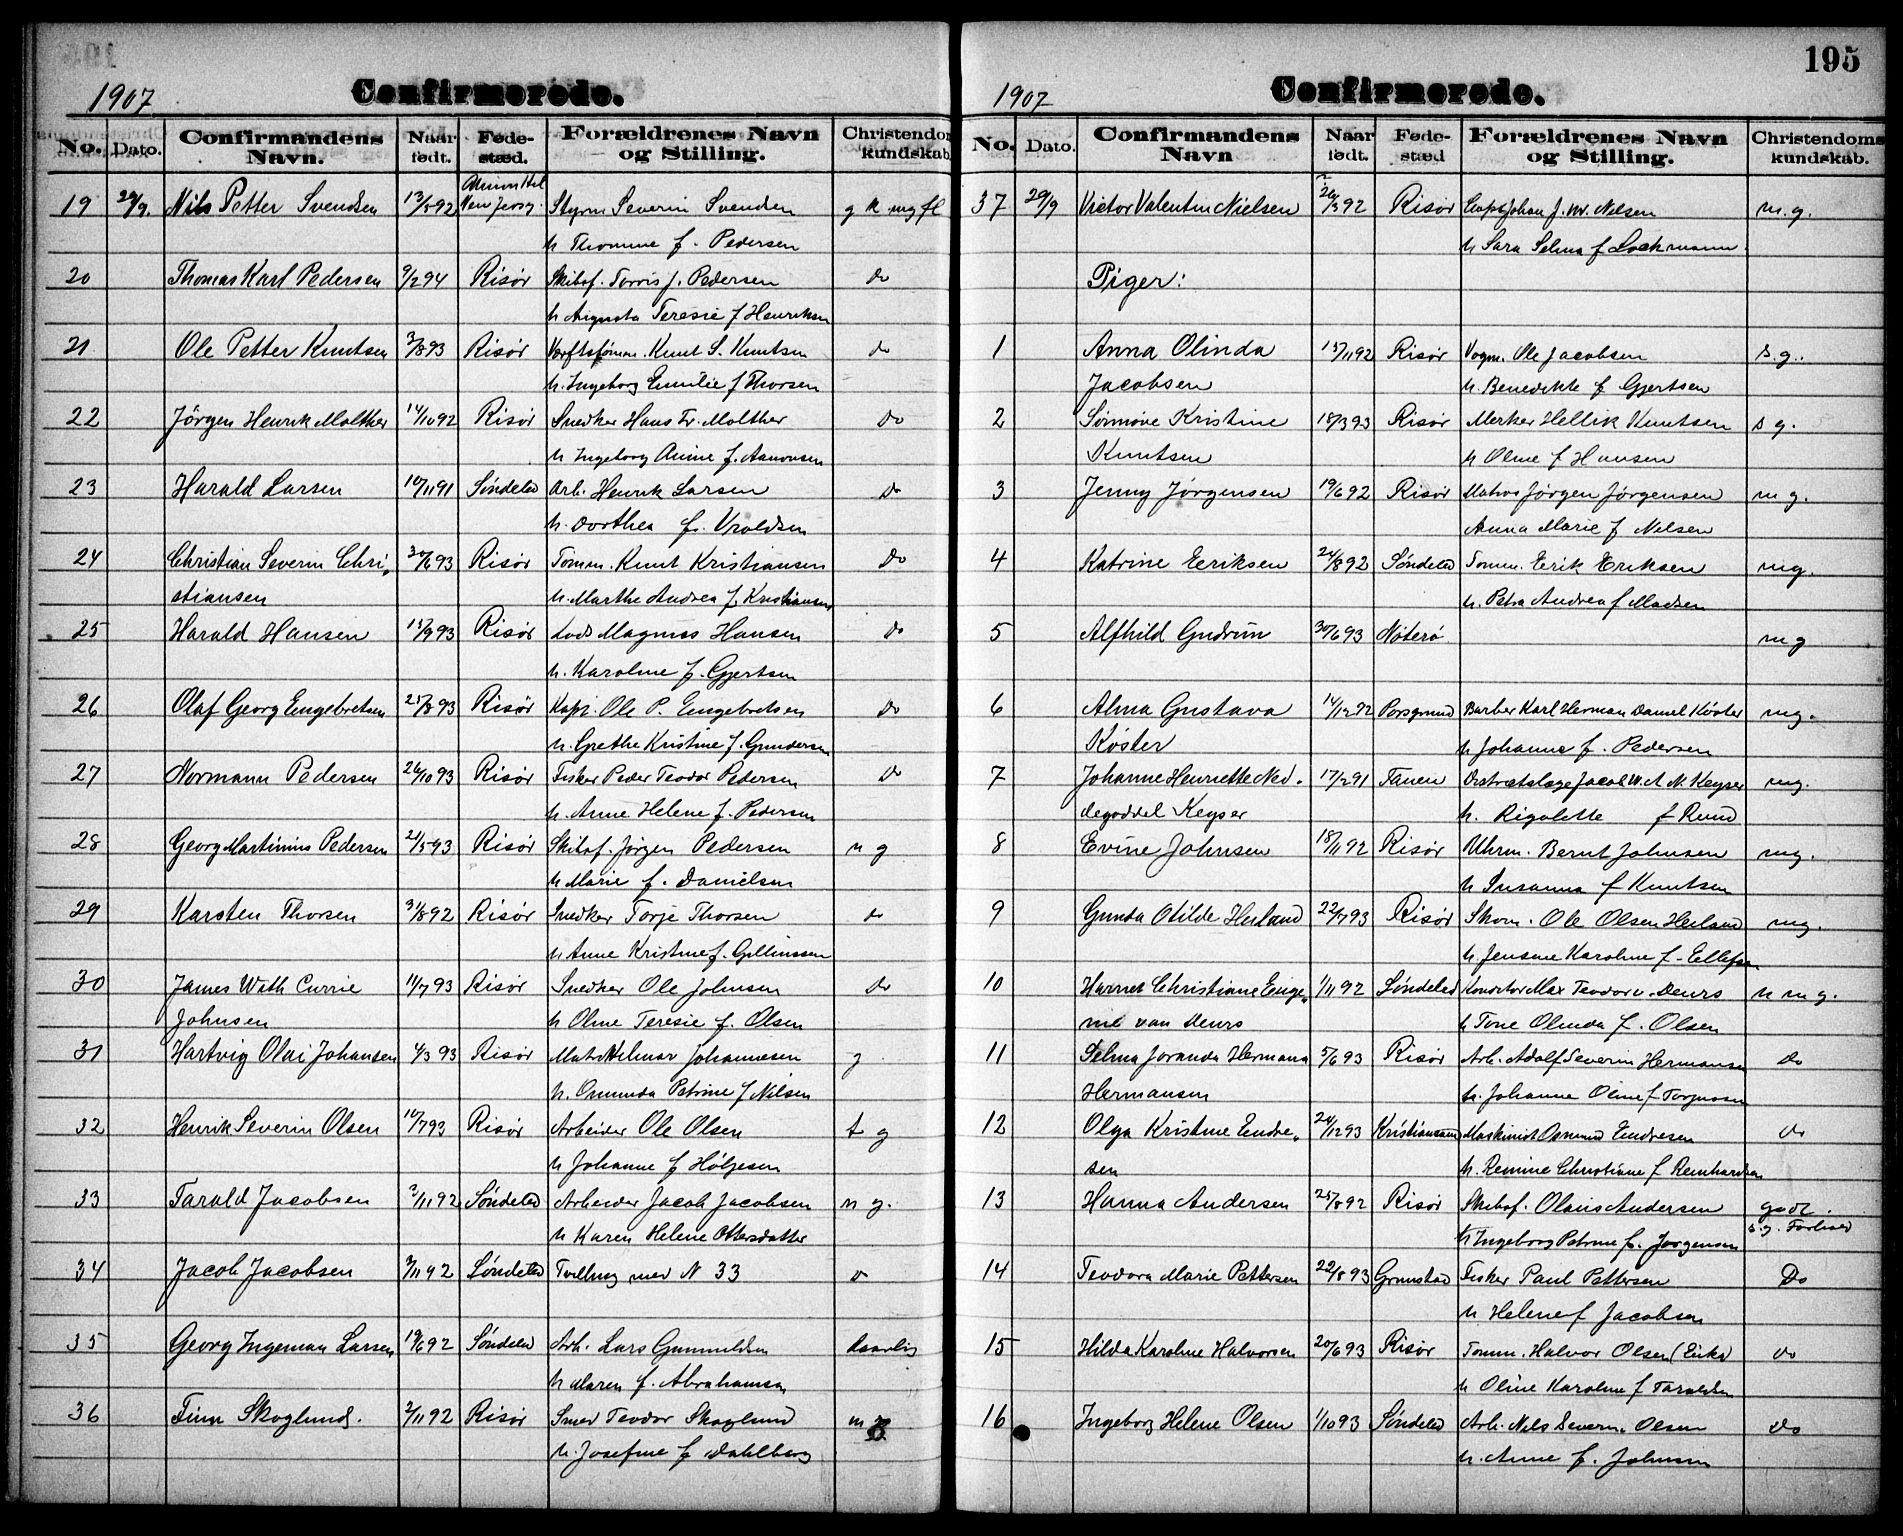 1907 Confirmerede.
No. Dato. Confirmandens Navn. Naar født. Føde-stæd. Forældrenes Navn og Stilling. Christendoms kundskab.
19 29/9. Nils Petter Svendsen 13/5 92 New Jersy. Styrm Severin Svendsen g k mg fl
h Thomine f. Pedersen
20 Thomas Karl Pedersen 9/2 94 Risør Skibsf. Torris J. Pedersen do
h Augusta Teresie f Henriksen
21 Ole Petter Knutsen 3/8 93 Risør Værftsfømm. Knut S. Knutsen do
h. Ingeborg Emilie f Thorsen
22 Jörgen Henrik Molther 14/10 92 Risør Snedker Hans Fr. Molther do
h Ingeborg Anine f. Aanonsen
23 Harald Larsen 10/11 91 Søndeled Arb. Henrik Larsen do
h. Dorthea f. Vroldsen
24 Christian Severin Chri- 30/6 93 Risør Tømm. Knut Kristiansen do
stiansen h. Marthe Andrea f. Kristiansen
25 Harald Hansen 15/9 93 Risør Lods Magnus Hansen do
h. Karoline f. Gjertsen
26 Olaf Georg Engebretsen 25/8 93 Risør Kapt. Ole P. Engebretsen do
h. Grethe Kristine f. Gundersen
27 Normann Pedersen 26/10 93 Risør Fisker Peder Teodor Pedersen do
h. Anne Helene f. Pedersen
28 Georg Martinius Pedersen 21/5 93 Risør Skibsf. Jörgen Pedersen n g
h Marie f. Danielsen
29 Karsten Thorsen 31/8 92 Risør Snedker Torje Thorsen do
h Anne Kristine f.
30 James Wath Currie 11/7 93 Risør Snedker Ole Johnsen do
Johnsen h Oline Teresie f. Olsen
31 Hartvig Olai Johansen 4/3 93 Risør Matr Hilmar Johannesen g
h. Omunda Petrine f Nilsen
32 Henrik Severin Olsen 10/7 93 Risør Arbeider Ole Olsen t g
h Johanne f Holjesen
33 Tarald Jacobsen 3/11 92 Søndeled Arbeider Jacob Jacobsen n g.
h Karen Helene Ottersdatter
34 Jacob Jacobsen 3/11 92 Søndeled Tvilling med N 33
35 Georg Ingeman Larsen 19/6 92 Søndeled Arb. Lars Gunnuldsen daarlig
h Maren f. Abrahamsen
36 Finn Skoglund. 2/11 92 Risør Smed Teodor Skoglund
h. Josefine f Dahlberg
195
1907 Confirmerede.
No. Dato. Confirmandens Navn Naar født. Føde-stæd Forældrenes Navn og Stilling. Christendoms kundskab.
37 29/9 Victor Valentin Nielsen 26/3 92 Risør Johan J. Nilsen m. g.
h Sara Selma f Lochmann
Piger:
1 Anna Olinda 15/11 92 Risør Vogm. Ole Jacobsen s. g.
Jacobsen h. Benedikte f Gjertsen
2 Sönnöve Kristine 18/3 93 Risør Merker Hellik Knutsen s g.
Knutsen h Oline f Hansen
3 Jenny Jörgensen 19/6 92 Risør Matros Jörgen Jörgensen m g.
Anna Marie f Nilsen
4 Katrine Eriksen 24/8 92 Søndeled Tomm. Erik Eriksen mg.
h. Petra Andrea f Madsen
5 Alfhild Gudrun 30/6 93 Nøterø m g
6 Alma Gustava 14/12 92 Porsgrund Barber Karl Herman Daniel Köster mg.
Köster h Johanne f. Pedersen
7 Johanne Henriette Ned- 17/2 91 Tanen Distrætslæge Jacob W. A. M. Keyser mg.
degoddel Keyser h. Rigolette f Rund
8 Evine Johnsen 18/11 92 Risør Uhrm. Bernt Johnsen mg.
h Susanna f Knutsen
9 Gunda Otilde Heiland 22/7 93 Risør Skom. Ole Olsen Heiland mg.
h. Jensine Karoline f. Ellefsen
10 Harriet Christiane Euge- 1/11 92 Søndeled Konditor Max Teodor v. Deurs n m g.
nie van Deurs h Tone Olinda f. Olsen
11 Selma Joranda Hermana 5/6 93 Risør Arb. Adolf Severin Hermansen do
Hermansen h. Johanne Oline f Torjussen
12 Olga Kristine Endre- 24/12 93 Kristiansand Maskinist Osmund Endresen do
sen h. Remine Christiane f Reinhardsen
13 Hanna Andersen 25/8 92 Risør Skibsf. Olaus Andersen godt.
h Ingeborg Petrine f. Jørgensen s. g. Forhold
14 Teodora Marie Pettersen 22/8 93 Grimstad Fisker Paul Pettersen Do
h Helene f Jacobsen
15 Hilda Karoline Halvorsen 20/6 93 Risør Tomm. Halvor Olsen do
h Oline Karoline f Taraldsen
16 Ingeborg Helene Olsen 1/10 93 Søndeled Arb. Nils Severin Olsen do
h. Anne f. Johnsen